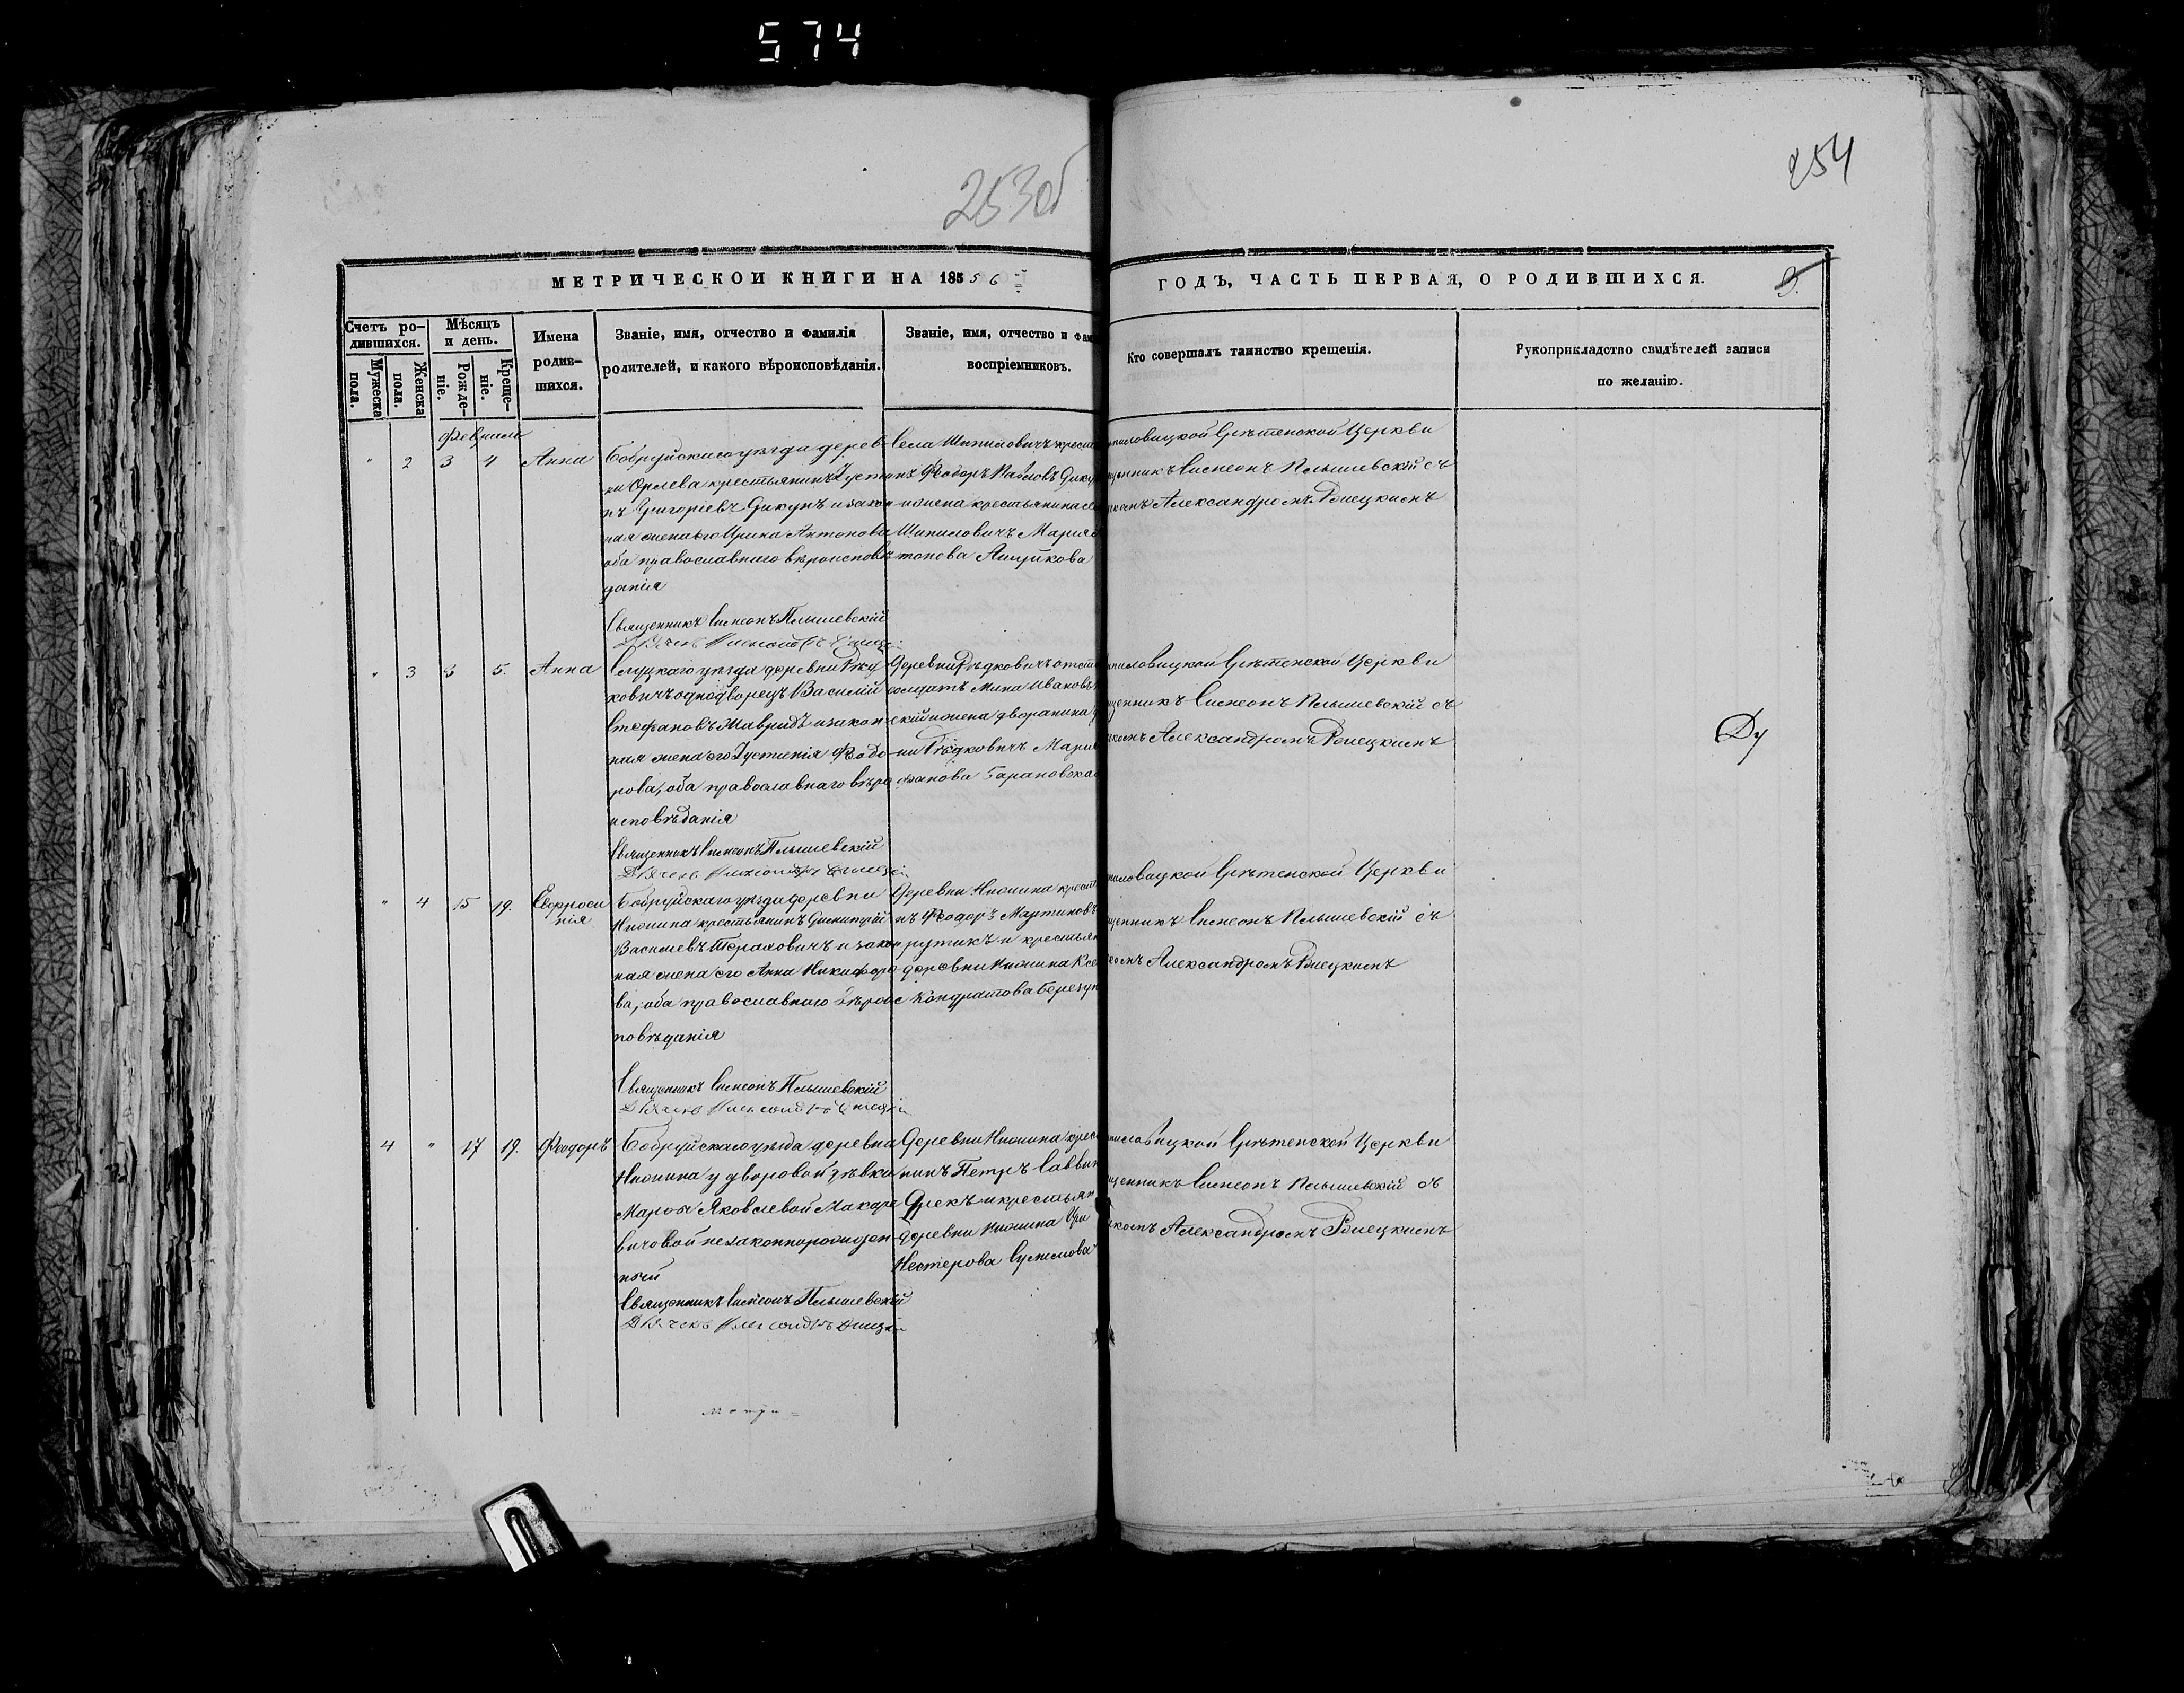 574
253об
254
МЕТРИЧЕСКОЙ КНИГИ НА 1856й
ГОДЪ, ЧАСТЬ ПЕРВАЯ, О РОДИВШИХСЯ.
Счетъ ро-
дившихся.
Мужеска
пола.
Женска
пола.
Мѣсяцъ
и день.
Рожде-
ніе.
Креще-
ніе.
Имена
родив-
шихся.
Званіе, имя, отчество и фамилія
родителей, и какого вѣроисповѣданія.
Званіе, имя, отчество и фам
воспріемниковъ.
Кто совершалъ таинство крещенія.
Рукоприкладство свидѣтелей записи
по желанію.
Февраля
" 2 3 4 Анна
Бобруйскаго уѣзда дерев
ни Орлева крестьянинъ Густи
нъ Григоріевъ Дикунъ и закон
ная жена его Ирина Антонова
оба православнаго вѣроисповѣ
данія
Священникъ Симеонъ Плышевскій
Села Шипиловичъ крест
Феодоръ Павловъ Дику
и жена крестьянина се
Шипиловичъ Марія
тонова Ашуйкова
пиловицкой Срѣтенской Церкви
щенникъ Симеонъ Плышевскій съ
комъ Александромъ
" 3 3 5. Анна
Слуцкаго уѣзда деревни Рѣд
ковичъ однодворецъ Василій
Стефановъ Жавридъ и закон
ная жена его Густинія Федо
рова, оба православнаго вѣро
исповѣданія
Священникъ Симеонъ Плышевскій
Деревни Рѣдковичъ отст
солдатъ Мина Ивановъ
скій и жена дворянина д
ни Рѣдковичъ Марія
фанова Барановская
пиловицкой Срѣтенской Церкви
щенникъ Симеонъ Плышевскій съ
комъ Александромъ
" 4 15 19. Евфроси
нія
Бобруйскаго уѣзда деревни
крестьянинъ Димитрій
Васильевъ Тераховичъ и закон
ная жена его Анна Никифоро
ва, оба православнаго вѣроис
повѣданія
Священникъ Симеонъ Плышевскій
Деревни крест
нъ Феодоръ Мартиновъ
рутикъ и крестьян
деревни Ксе
Кондратова Березун
пиловицкой Срѣтенской Церкви
щенникъ Симеонъ Плышевскій съ
комъ Александромъ
4 " 17 19. Феодоръ
Бобруйскаго уѣзда деревни
у дворовой дѣвки
Марѳы Яковлевой Макаре
вичовой незаконнорожден
ный
Священникъ Симеонъ Плышевскій
Деревни крес
нинъ Петръ Саввин
и крестьян
деревни Ири
Нестерова
пиловицкой Срѣтенской Церкви
щенникъ Симеонъ Плышевскій съ
комъ Александромъ